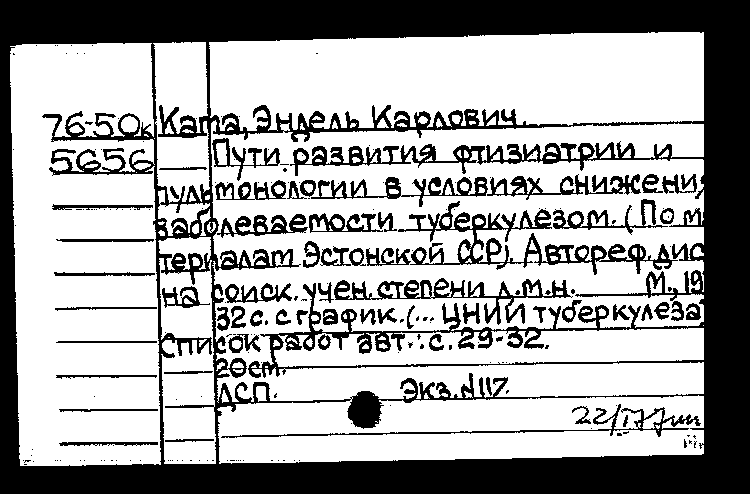 76-50к Ката, Эндель Карлович.
5656 Пути развития фтизиатрии и
пульмонологии в условиях снижения
заболеваемости туберкулезом. (По ма
териалам Эстонской ССР). Автореф. дис
на соиск. учен. степени д.м.н. М., 19
32 с. с график. (... ЦНИИ туберкулеза)
Список работ авт.: с. 29-32.
20 см.
ДСП. Экз. N117.